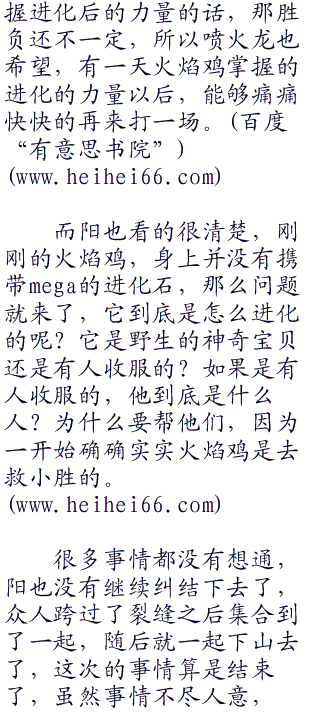 握进化后的力量的话，那胜
负还不一定，所以喷火龙也
希望，有一天火焰鸡掌握的
进化的力量以后，能够痛痛
快快的再来打一场。(百度
“有意思书院”)
(www.heihei66.com)
而阳也看的很清楚，刚
刚的火焰鸡，身上并没有携
带mega的进化石，那么问题
就来了，它到底是怎么进化
的呢？它是野生的神奇宝贝
还是有人收服的？如果是有
人收服的，他到底是什么
人？为什么要帮他们，因为
一开始确确实实火焰鸡是去
救小胜的。
(www.heihei66.com)
很多事情都没有想通，
阳也没有继续纠结下去了，
众人跨过了裂缝之后集合到
了一起，随后就一起下山去
了，这次的事情算是结束
了，虽然事情不尽人意，